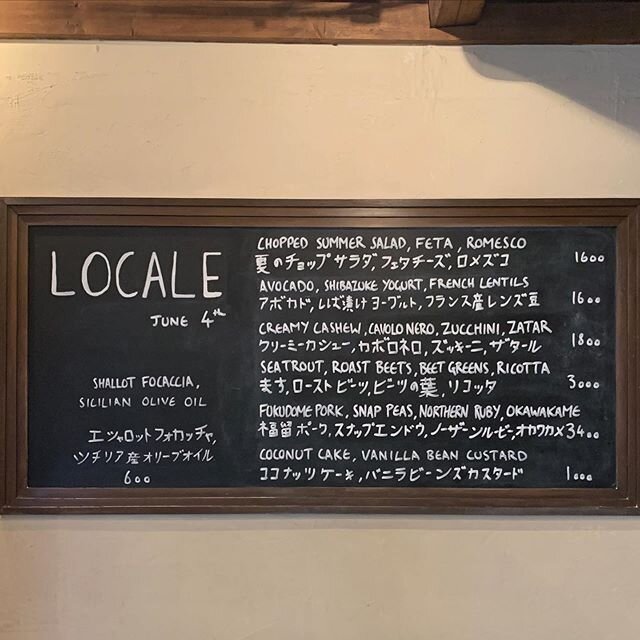 LOCALE
JUNE 4th
SHALLOT FOCACCIA,
SICILIAN OLIVE OIL
エシャロットフォカッチャ,
シチリア産オリーブオイル
600
CHOPPED SUMMER SALAD, FETA, ROMESCO
夏のチョップサラダ, フェタチーズ, ロメズコ 1600
AVOCADO, SHIBAZUKE YOGURT, FRENCH LENTILS
アボカド, しば漬けヨーグルト, フランス産レンズ豆 1600
CREAMY CASHEW, CAVOLO NERO, ZUCCHINI, ZATAR
クリーミーカシュー, カボロネロ, ズッキーニ, ザタール 1800
SEATROUT, ROAST BEETS, BEET GREENS, RICOTTA
ます, ローストビーツ, ビーツの葉, リコッタ 3000
FUKUDOME PORK, SNAP PEAS, NORTHERN RUBY, OKAWAKAME
福留ポーク, スナップエンドウ, ノーザンルビー, オカワカメ 3400
COCONUT CAKE, VANILLA BEAN CUSTARD
ココナッツケーキ, バニラビーンズカスタード 1000